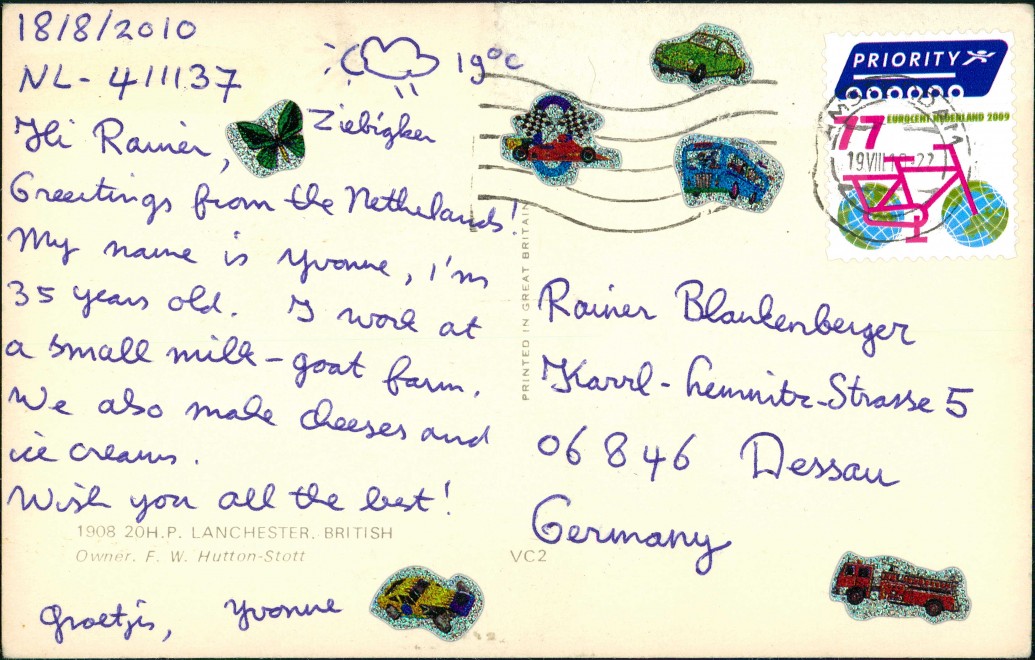 18/8/2010
NL-411137
19°C
Hi Rainer,
Ziebigker
Greetings from the Netherlands!
My name is Yvonne, I'm
35 years old. I work at
a small milk-goat farm.
We also make cheeses and
ice creams.
Wish you all the best!
1908 20H.P. LANCHESTER. BRITISH
Owner. F. W. Hutton-Stott
Groetjes, Yvonne
VC2
PRINTED IN GREAT BRITAIN
PRIORITY
77
EUROCENT NEDERLAND 2009
19 VIII 10-22
Rainer Blankenberger
Karrl-hemnitz-Strasse 5
06846 Dessau
Germany